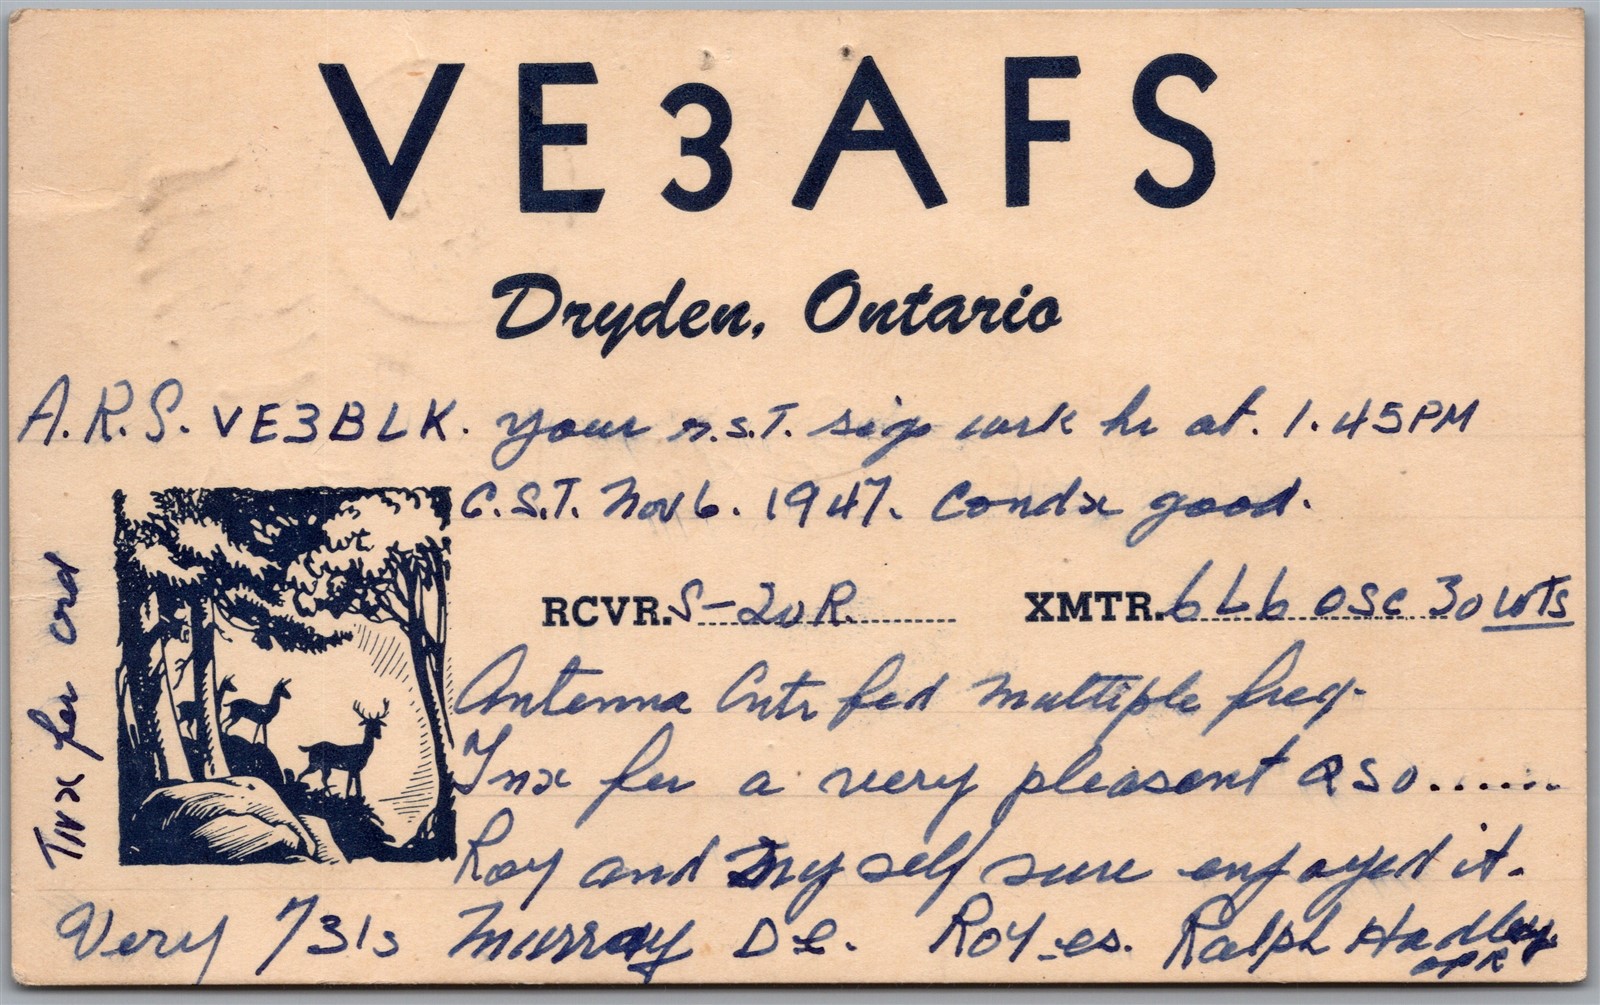 VE3AFS
Dryden, Ontario
A.R.S. VE3BLK. your r.s.T. sigs wrk hr at. 1.45PM
C.S.T. Nov 6. 1947. Condx good.
RCVR. S-20R XMTR. 6L6 osc 30 wts
Antenna Cntr fed multiple freq.
Tnx fer a very pleasant QSO......
Roy and myself sure enjoyed it.
Very 73's Murray De. Roy es. Ralph Hadley.
OPR
Tnx fer crd